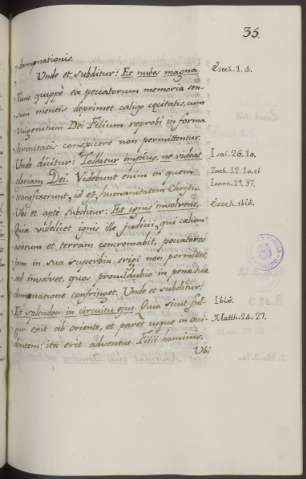 35.
damnationis.
Unde et subditur: Et nubes magna
Ezech. 1. 4.
Tunc quippe ex peccatorum memoria
mentis deprimet caligo cæcitatis, cum
Unigenitum Dei Filium reprobi in forma
divinitatis conspicere non permittentur.
Unde dicitur: Tollatur impius, ne videat
Isai. 26. 10.
gloriam Dei. Videbunt enim in quem
Zach. 12. 10. et
transfixerunt, id est, humanitatem Christi.
Joann. 19. 37.
Ubi et apte subditur: Et ignis involvens,
Ezech. ibid.
Quia videlicet ignis ille judicii, qui cælum
aerem et terram concremabit, peccatores
jam in sua superbia erigi non permittet,
ad involvet, quos pro
damnatione constringet. Unde et subditur:
Et splendor in circuitu ejus. Quia sicut ful-
Ibid.
gur exit ab oriente, et paret usque in occi-
Matth. 24. 27.
dentem: ita erit adventus Filii hominis.
Ubi